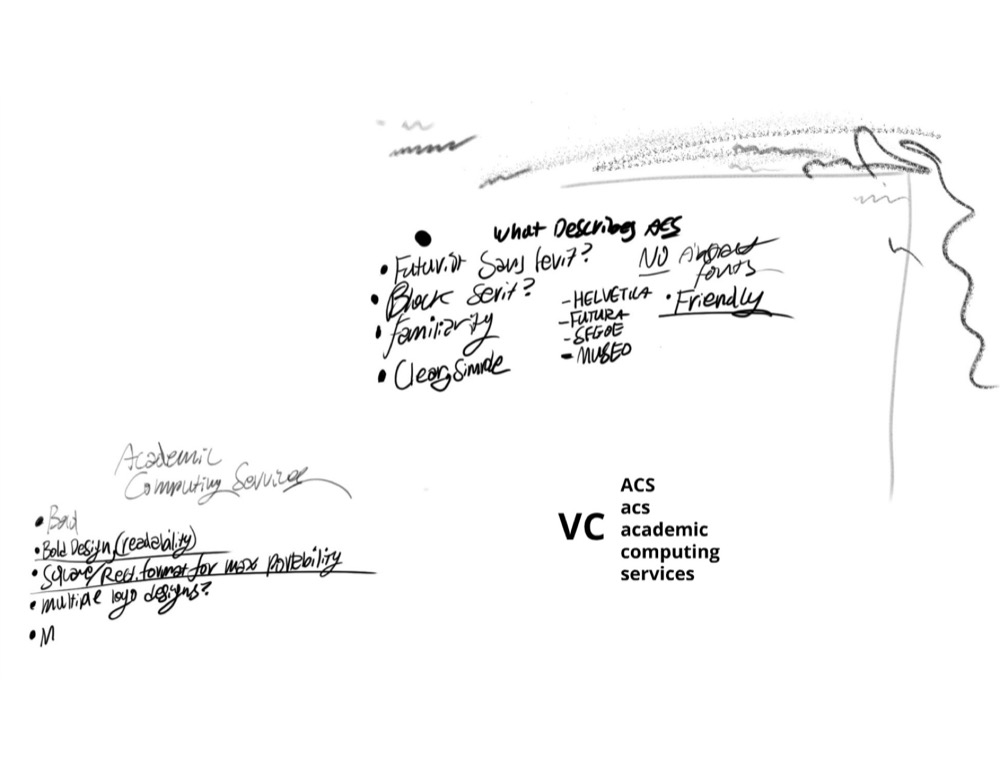 What Describes ACS
• Futurist Sans Serif?
• Block Serif?
• familiarity
• Clear, Simple
NO
fonts
- HELVETICA
- FUTURA
- SEGOE
- MUSEO
• Friendly
Academic
Computing Services
• Bold Design (readability)
• Square/Rect. format for max portability
• multiple logo designs?
• M
VC
ACS
acs
academic
computing
services